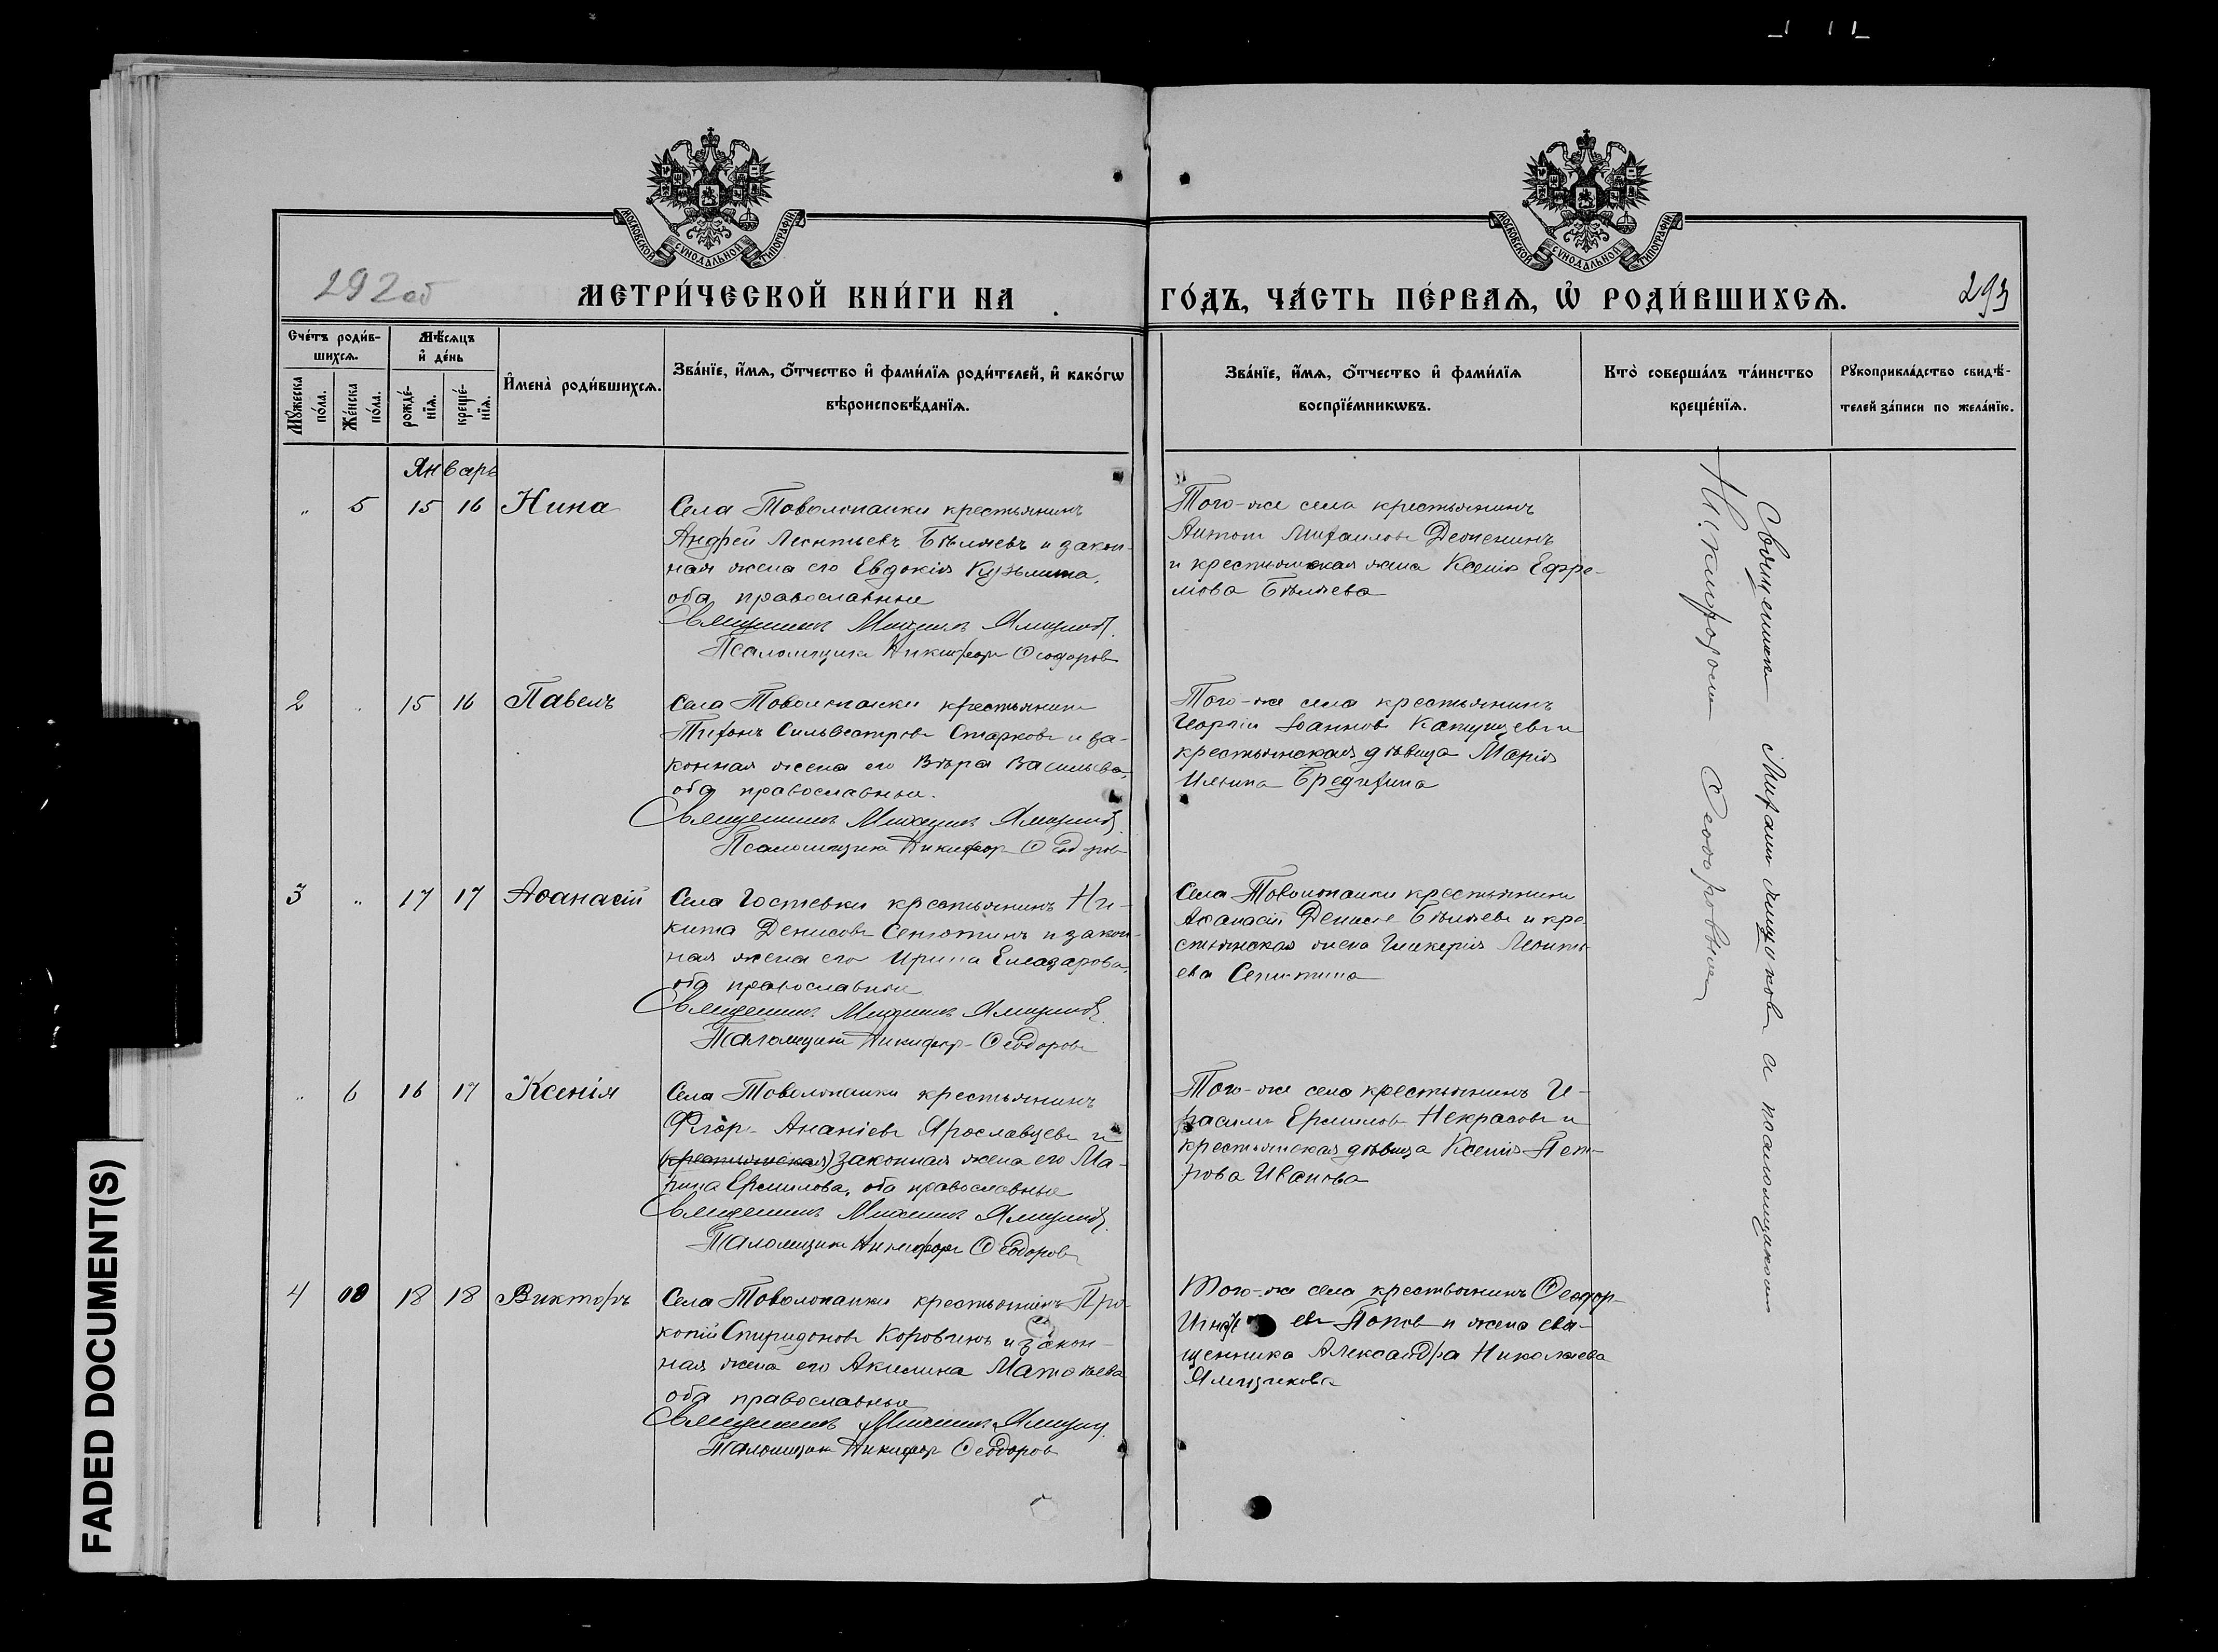 МОСКОВСКОЙ СѴНОДАЛЬНОЙ ТИПОГРАФІИ
МОСКОВСКОЙ СѴНОДАЛЬНОЙ ТИПОГРАФІИ
292об
МЕТРИ́ЧЕСКОЙ КНИ́ГИ НА
ГО́ДЪ, ЧА́СТЬ ПЕ́РВАѦ, Ѡ҆ РОДИ́ВШИХСѦ.
293
Сче́тъ роди́в-
шихсѧ.
Мꙋ́жеска по́ла.
Же́нска по́ла.
Мѣ́сѧцъ
и҆ де́нь
рожде́-
нїѧ.
креще́-
нїѧ.
И҆мена̀ роди́вшихсѧ.
Зва́нїе, и҆́мѧ, ѻ҆́тчество и҆ фами́лїѧ роди́телей, и҆ како́гѡ
вѣроисповѣ́данїѧ.
Зва́нїе, и҆́мѧ, ѻ҆́тчество и҆ фами́лїѧ
воспрїе́мникѡвъ.
Кто̀ соверша́лъ та́инство
креще́нїѧ.
Рꙋкоприкла́дство свидѣ́-
телей за́писи по жела́нїю.
Январь
" 5 15 16 Нина
Села Товолжанки крестьянинъ
Андрей Леонтьевъ Бѣляевъ и закон-
ная жена его Евдокія Кузьмина,
оба православные
Священникъ Михаилъ Ямщиковъ
Псаломщикъ Никифоръ Ѳеодоровъ
Того-же села крестьянинъ
Антонъ Михаиловъ
и крестьянская жена Ксенія Ефре-
мова Бѣляева
2 15 16 Павелъ
Села Товолжанки крестьянинъ
Тихонъ Сильвестровъ Старковъ и за-
конная жена его Вѣра Васильева,
оба православные.
Священникъ Михаилъ Ямщиковъ
Псаломщикъ Никифоръ Ѳеодоровъ
Того-же села крестьянинъ
Георгій Іоанновъ и
крестьянская дѣвица Марія
Ильина Бредихина
3 " 17 17 Аѳанасій
Села Гостевки крестьянинъ Ни-
кита Денисовъ Сенютинъ и закон-
ная жена его Ирина Елеазарова,
оба православные
Священникъ Михаилъ Ямщиковъ
Псаломщикъ Никифоръ Ѳеодоровъ
Села Товолжанки крестьянинъ
Аѳанасій Бѣляевъ и кре
стьянская жена Гликерія Леонть
ева Сенютина
" 6 16 17 Ксенія
Села Товолжанки крестьянинъ
Флоръ Ананіевъ Ярославцевъ и
(крестьянская) законная жена его Ма-
рина Ермилова, оба православные
Священникъ Михаилъ Ямщиковъ
Псаломщикъ Никифоръ Ѳеодоровъ
Того-же села крестьянинъ Ге-
расимъ Ермиловъ Некрасовъ и
крестьянская дѣвица Ксенія Пет-
рова Иванова
4 18 18 Викторъ
Села Товолжанки крестьянинъ Про-
копій Спиридоновъ Коровинъ и закон-
ная жена его Акилина Матѳіева
оба православные
Священникъ Михаилъ Ямщик
Псаломщикъ Никифоръ Ѳеодоровъ
Того-же села крестьянинъ Ѳеодор
евъ Поповъ и жена свя-
щенника Александра Николаева
Ямщикова
Священникъ Михаилъ Ямщиковъ съ псаломщикомъ
Никифоромъ Ѳеодоровымъ
FADED DOCUMENT(S)